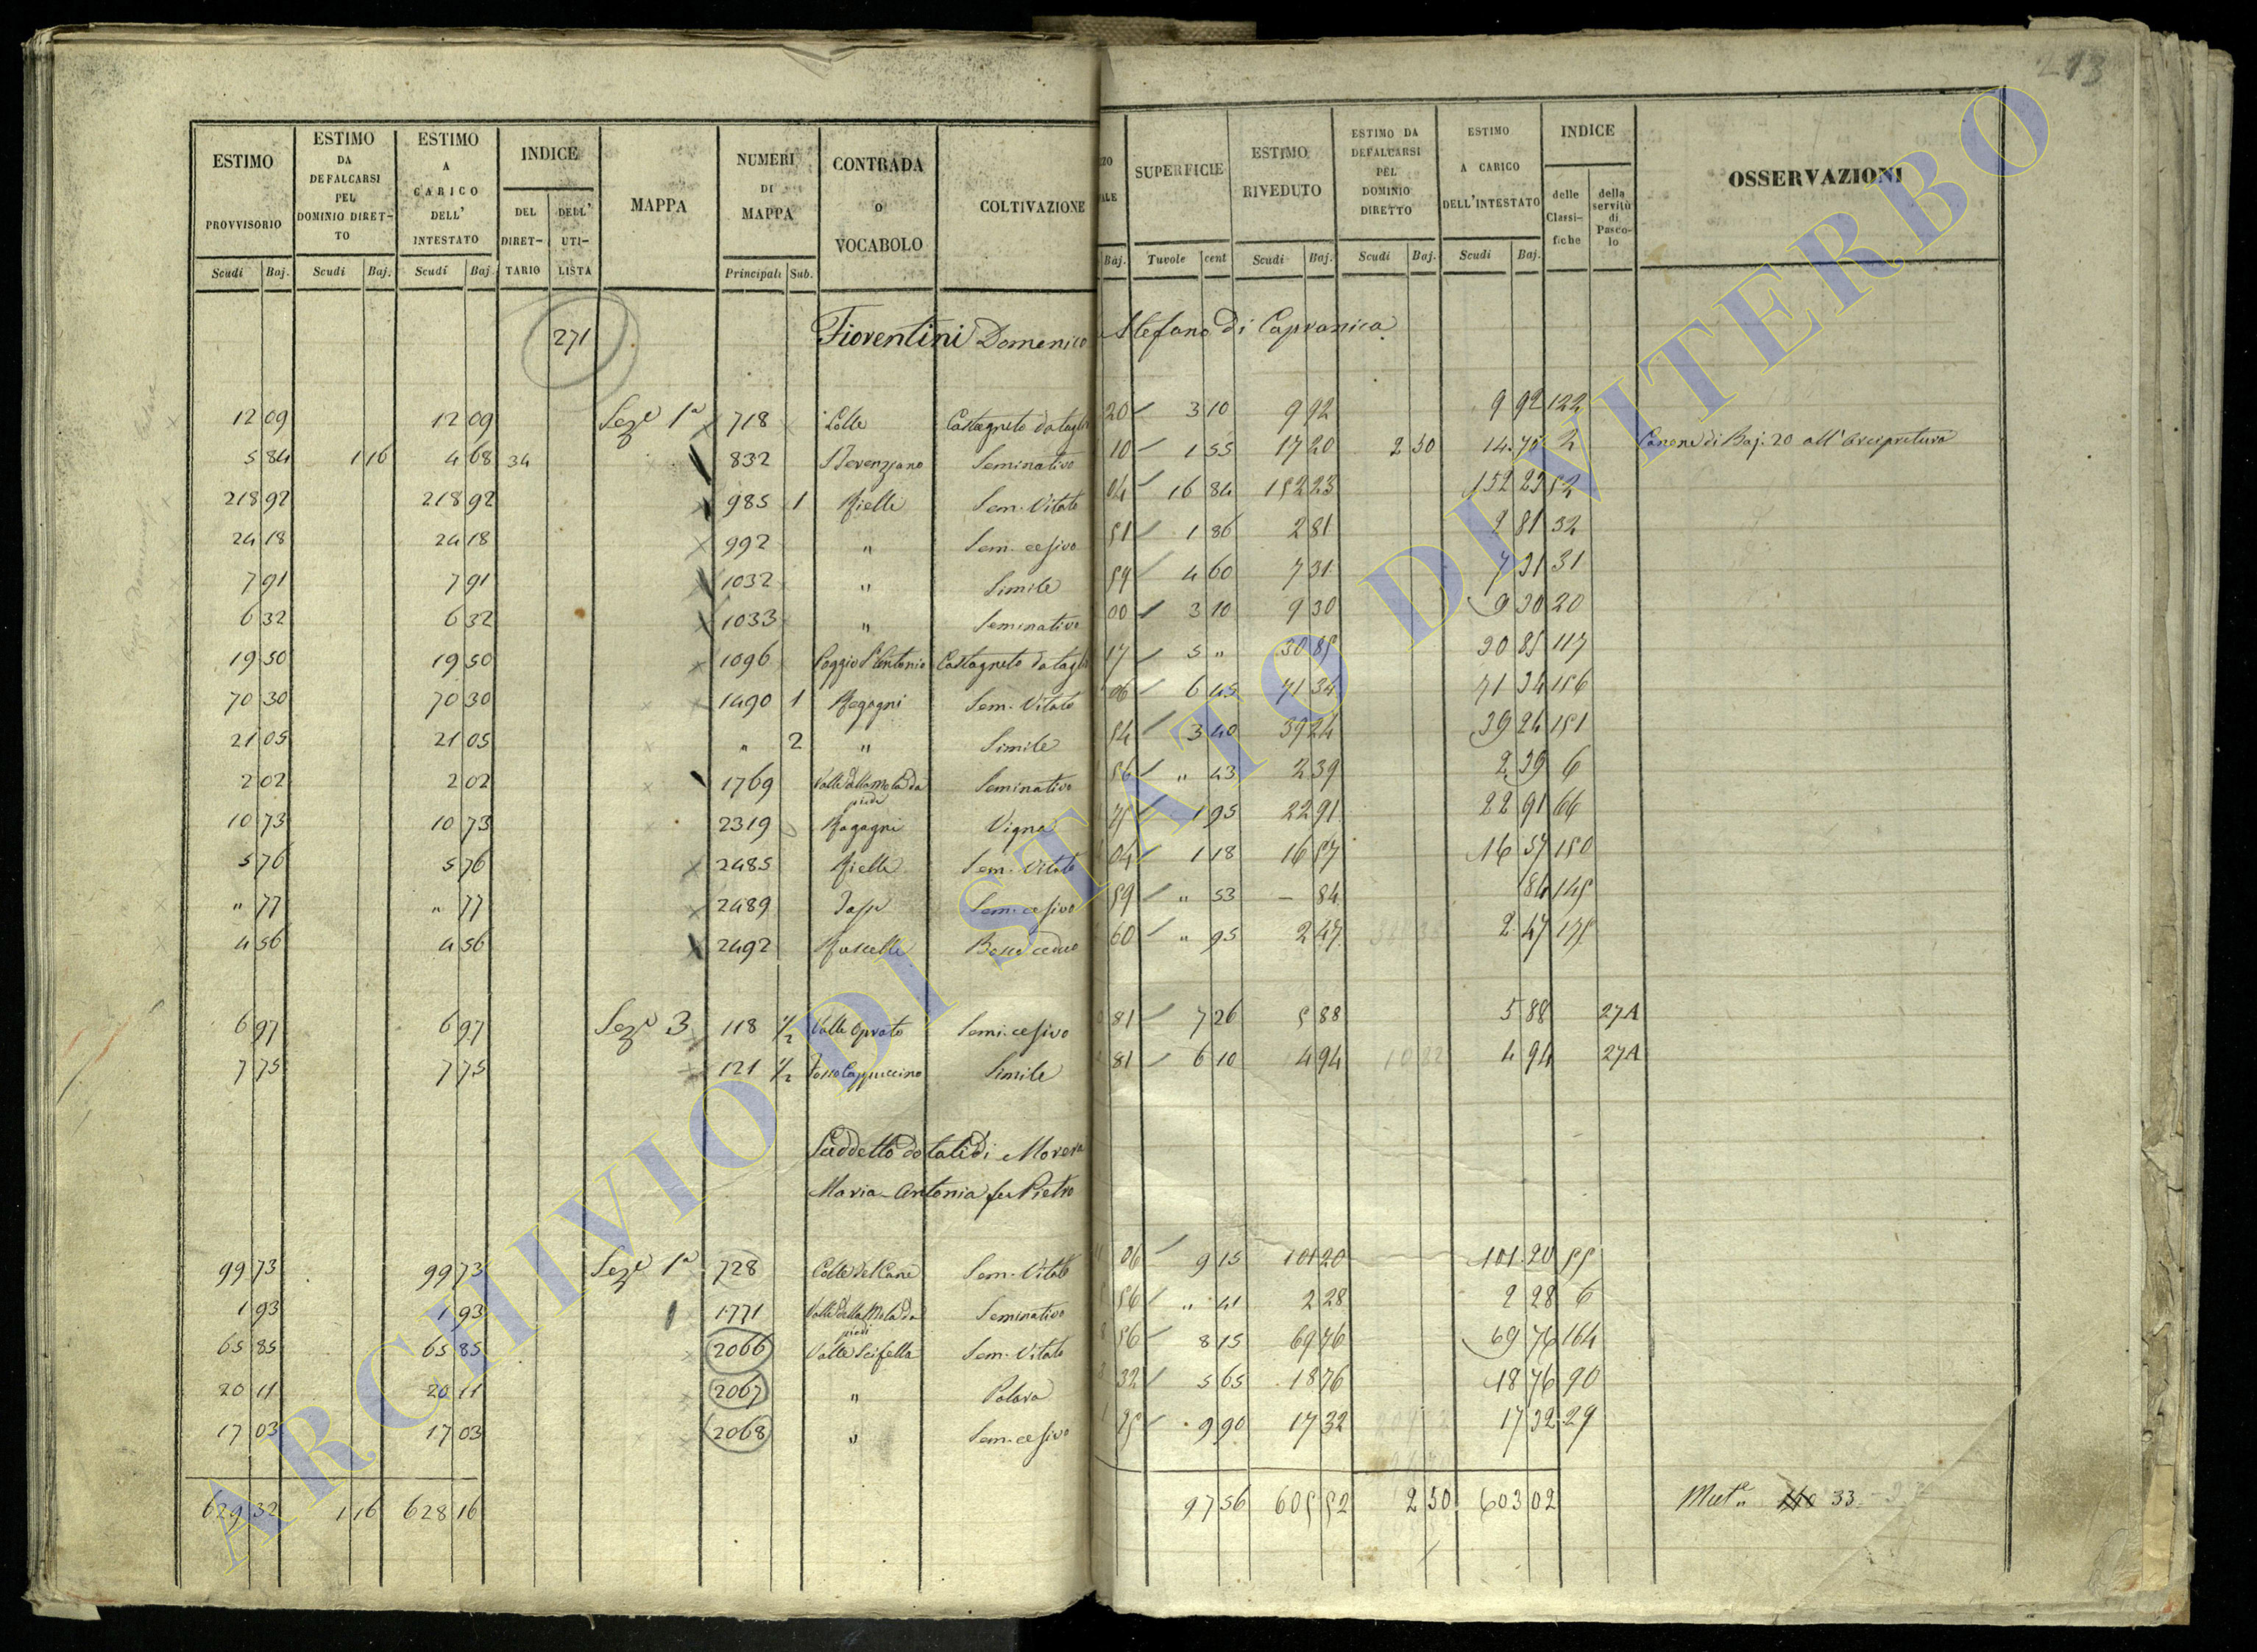 213
ESTIMO PROVVISORIO Scudi Baj.
ESTIMO DA DEFALCARSI PEL DOMINIO DIRETTO Scudi Baj.
ESTIMO A CARICO DELL' INTESTATO Scudi Baj
INDICE DEL DIRETTARIO DELL' UTILISTA
MAPPA
NUMERI DI MAPPA Principali Sub.
CONTRADA O VOCABOLO
COLTIVAZIONE
Baj.
SUPERFICIE Tavole cent
ESTIMO RIVEDUTO Scudi Baj.
ESTIMO DA DEFALCARSI PEL DOMINIO DIRETTO Scudi Baj.
ESTIMO A CARICO DELL'INTESTATO Scudi Baj.
INDICE delle Classifiche della servitù di Pascolo
OSSERVAZIONI
271 Fiorentini Domenico Stefano di Capranica
12 09 12 09 Sez.e 1a 718 Colle Castagneto da taglio 20 3 10 9 92 9 92 122
5 84 1 16 4 68 34 832 S Terenziano Seminativo 10 1 55 17 20 2 50 14 70 2 Canone di Baj. 20 all'Arcipretura
218 92 218 92 985 1 Rielle Sem. Vitato 04 16 84 152 23 152 23 52
24 18 24 18 992 " Sem. cesivo 51 1 86 2 81 2 81 32
7 91 7 91 1032 " Simile 59 4 60 7 31 7 31 31
6 32 6 32 1033 " Seminativo 00 3 10 9 30 9 30 20
19 50 19 50 1096 Poggio S. Antonio Castagneto da taglio 17 5 " 30 85 30 85 117
70 30 70 30 1490 1 Regagni Sem. Vitato 06 6 45 71 34 71 34 156
21 05 21 05 " 2 " Simile 54 3 40 39 24 39 24 151
2 02 2 02 1769 Valle della Mola da piedi Seminativo 56 " 43 2 39 2 39 6
10 73 10 73 2319 Ragagni Vigna 75 1 95 22 91 22 91 66
5 76 5 76 2485 Rielle Sem. Vitato 04 1 18 16 57 16 57 150
" 77 " 77 2489 Sem. cesivo 59 " 53 - 84 84 145
4 56 4 56 2492 Ruscelle Bosco ceduo 60 " 95 2 47 2 47 175
6 97 6 97 Sez.e 3 118 1/2 Valle Oprato Semi. cesivo 81 7 26 5 88 5 88 27A
7 75 7 75 121 1/2 Fosso Cappuccino Simile 81 6 10 4 94 4 94 27A
Suddetto dotali di Morera
Maria Antonia fu Pietro
99 73 99 73 Sez.e 1a 728 Colle del Cane Sem. Vitato 06 9 15 101 20 101 20 55
1 93 1 93 1771 Valle della Mola da piedi Seminativo 56 " 41 2 28 2 28 6
65 85 65 85 2066 Valle Scifella Sem. Vitato 56 8 15 69 76 69 76 164
20 11 20 11 2067 " Polara 32 5 65 18 76 18 76 90
17 03 17 03 2068 " Sem. cesivo 75 9 90 17 32 17 32 29
629 32 1 16 628 16 97 56 605 52 2 50 603 02 Mut.e 33
ARCHIVIO DI STATO DI VITERBO